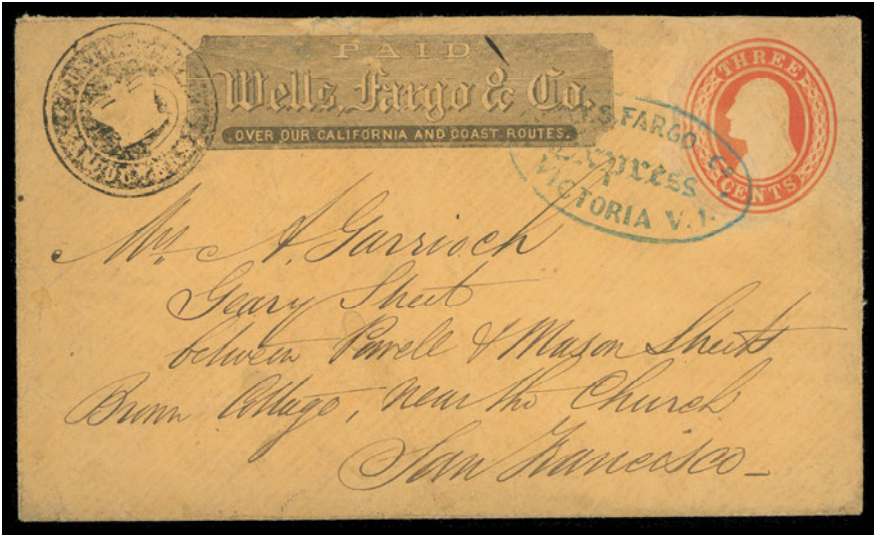 PAID
Wells, Fargo & Co.
OVER OUR CALIFORNIA AND COAST ROUTES.
THREE
CENTS
FARGO Co
Express
VICTORIA V.I.
A. Garrioch
Geary Street
between Powell & Mason Streets
Brown Cottage, near the Church
San Francisco